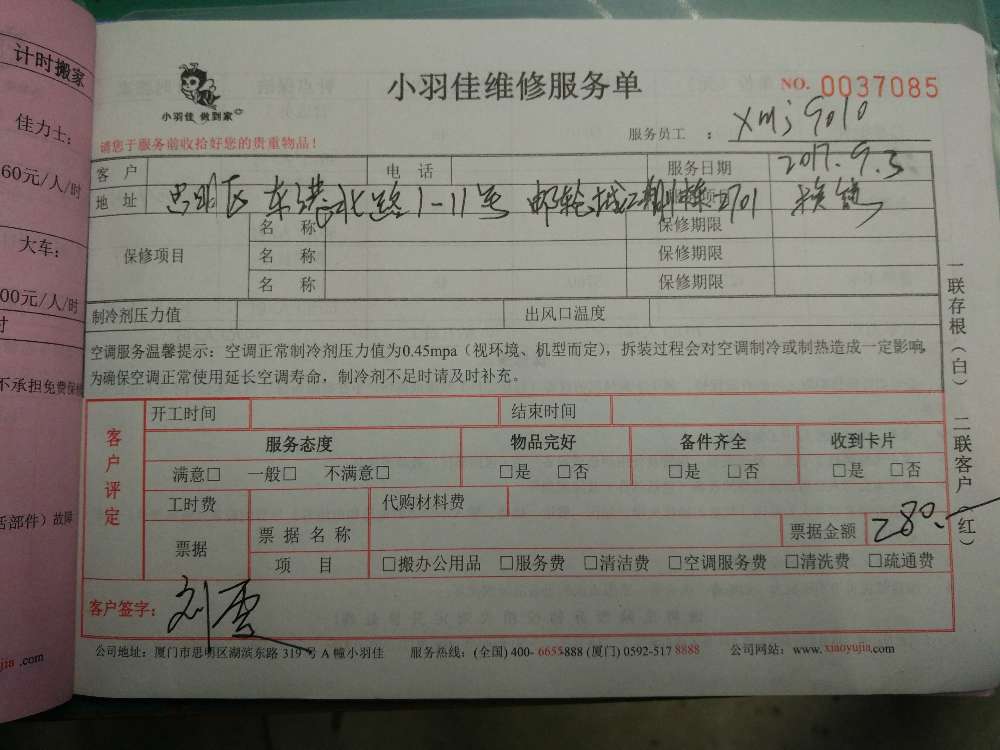 计时搬家
佳力士：
60元/人/时
大车：
00元/人/时
时
不承担免费保修
活部件）故障
jia .com
小羽佳 做到家
小羽佳维修服务单
NO. 0037085
服务员工 ： xmj9010
请您于服务前收拾好您的贵重物品！
客 户 电 话 服务日期 2017.9.3
地 址 思明区东港北路1-11号 邮轮城 2701 换锁
保修项目 名 称 保修期限
名 称 保修期限
名 称 保修期限
制冷剂压力值 出风口温度
空调服务温馨提示：空调正常制冷剂压力值为0.45mpa（视环境、机型而定），拆装过程会对空调制冷或制热造成一定影响，
为确保空调正常使用延长空调寿命，制冷剂不足时请及时补充。
客户评定
开工时间 结束时间
服务态度 物品完好 备件齐全 收到卡片
满意□ 一般□ 不满意□ □是 □否 □是 □否 □是 □否
工时费 代购材料费
票据 票 据 名 称 票据金额 280.-
项 目 □搬办公用品 □服务费 □清洁费 □空调服务费 □清洗费 □疏通费
客户签字： 刘雪
公司地址：厦门市思明区湖滨东路 319 号 A 幢小羽佳 服务热线：(全国) 400- 6655888 (厦门) 0592-517 8888 公司网站：www.xiaoyujia.com
一联存根（白） 二联客户（红）